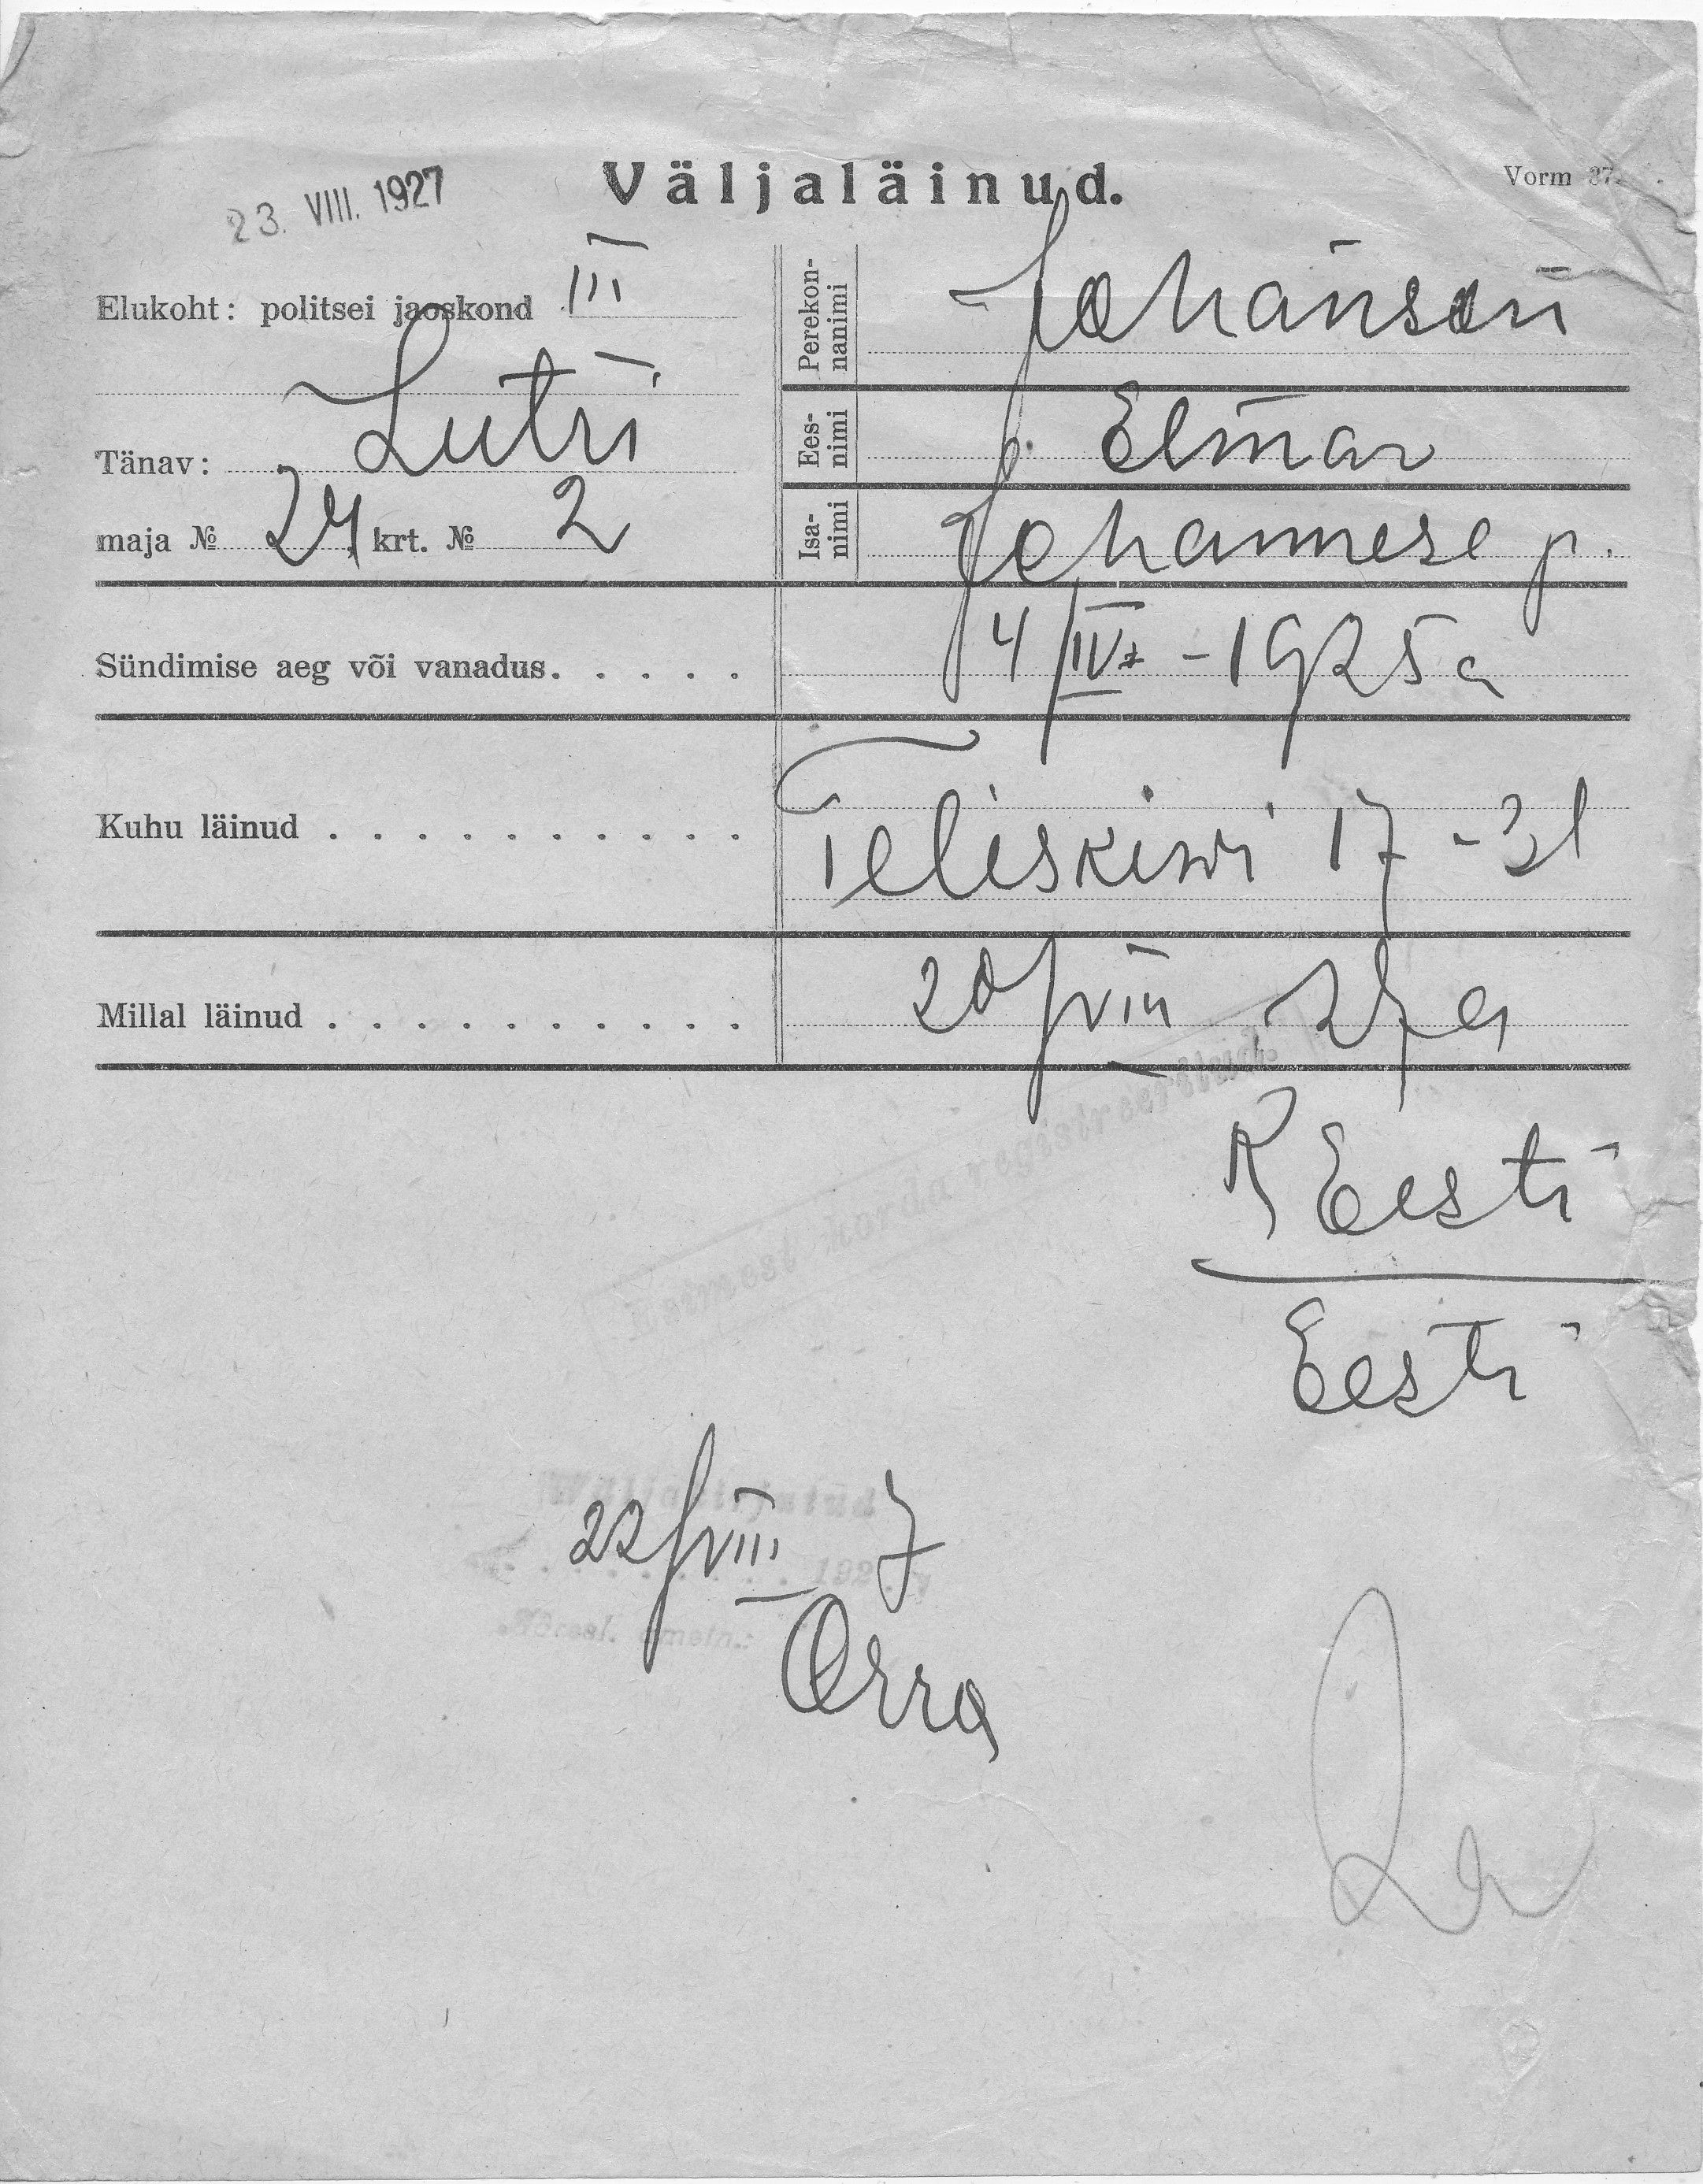 23. VIII. 1927
Väljaläinud.
Vorm 37.
Elukoht: politsei jaoskond III
Tänav: Lutri
maja № 24 krt. № 2
Perekon-
nanimi
Johanson
Ees-
nimi
Elmar
Isa-
nimi
Johannese p.
Sündimise aeg või vanadus. . . . . . 4/IV - 1925 a
Kuhu läinud . . . . . . . . . . . Teliskiwi 17 - 31
Millal läinud . . . . . . . . . . . 20/VIII 27 a
korda registreeritud.
R Eesti
Eesti
22/VIII 7
192
Orra